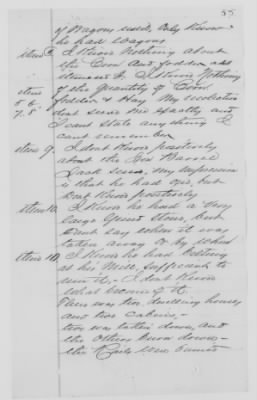 55
of Wagons used, Only Know
he had Wagons
Item 4 I Know Nothing about
the Corn And fodder as
Item 4. I Know Nothing
Item 5. 6. of the Quantity of Corn
7. 8 fodder & Hay My recollection
dont serve me exactly and
I cant state any thing I
cant remember
Item 9. I dont Know positively
about the Barrel
Jack My impression
is that he had one, but
dont Know positively
Item 10. I Know he had a very
large Grind Stone, but
cant say when it was
taken away or by whom
Item 11. I Know he had Belting
at his Mill, sufficient to
run it, I dont Know
what become of it
There was two dwelling houses
and two cabins,
two was taken down, and
the others burn down
the Rails were burnt